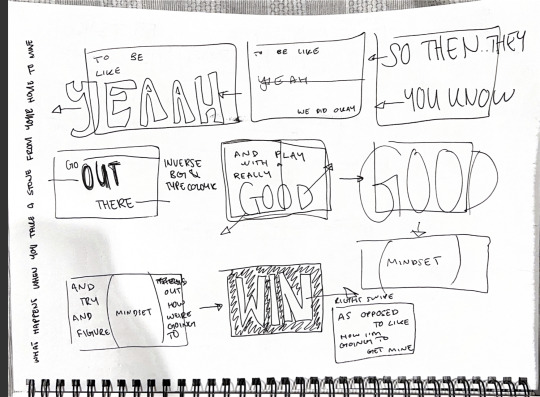 WHAT HAPPENS WHEN YOU TAKE A STONE FROM YOUR HOME TO MINE
TO BE
LIKE
YEAAH
TO BE LIKE
YEAH
WE DID OKAY
SO THEN..THEY
YOU KNOW
GO
OUT
THERE
INVERSE
BG &
TYPE COLOUR
AND PLAY
WITH A
REALLY
GOOD
GOOD
MINDSET
AND
TRY
AND
FIGURE
MINDSET
OUT
HOW
WE'RE
GOING
TO
WIN
RIGHT SWIPE
AS OPPOSED
TO LIKE
HOW I'M
GOING TO
GET MINE